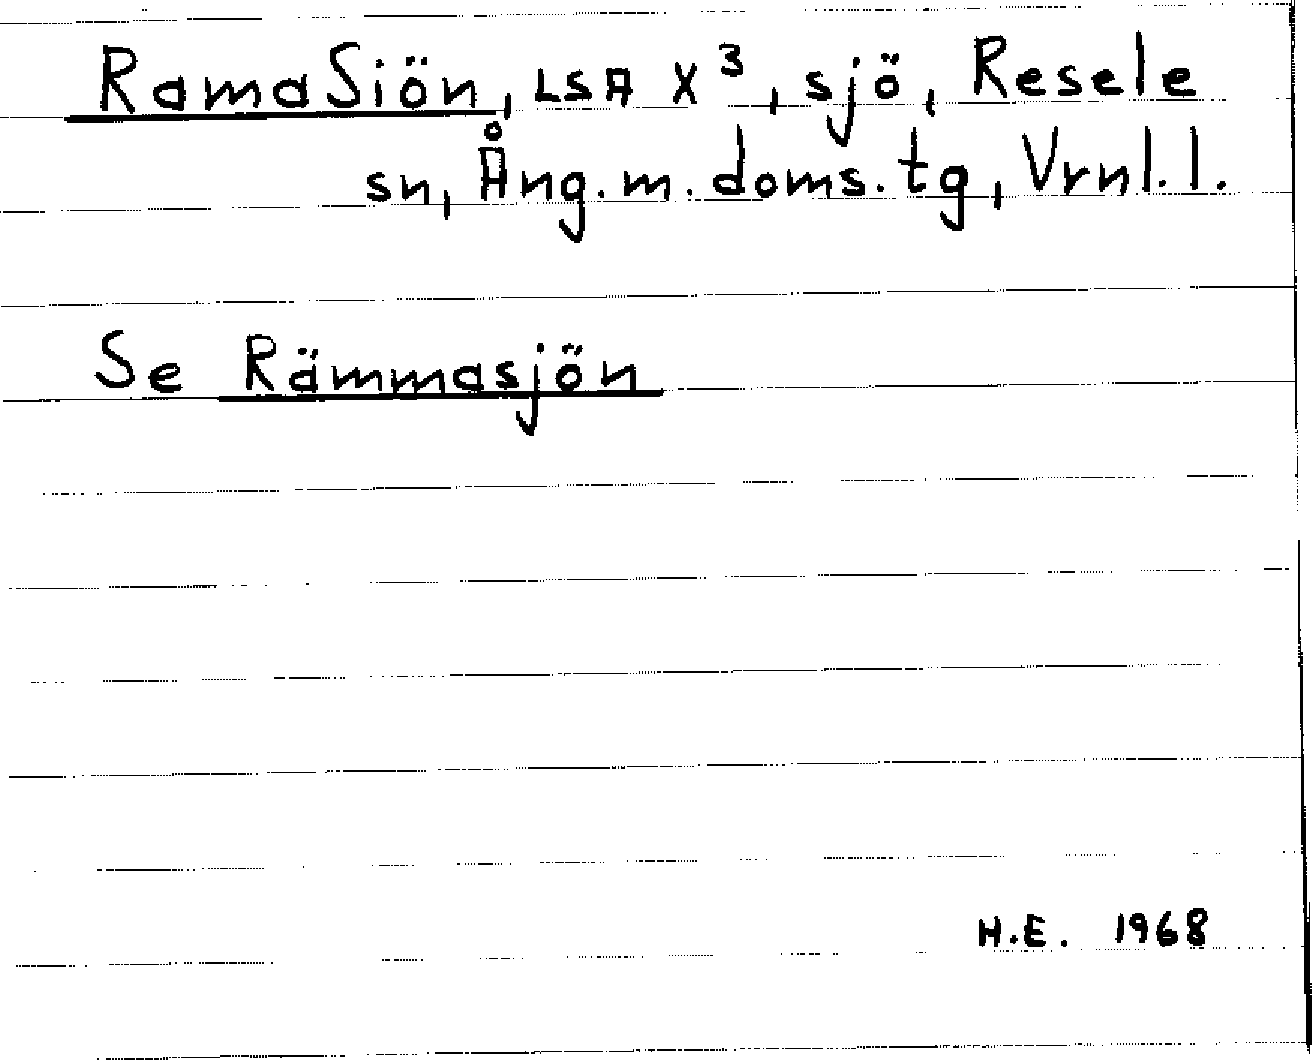 RamaSiön, LSA X³, sjö, Resele
sn, Ång.m.doms.tg, Vrnl.l.
Se Rämmasjön
H.E. 1968